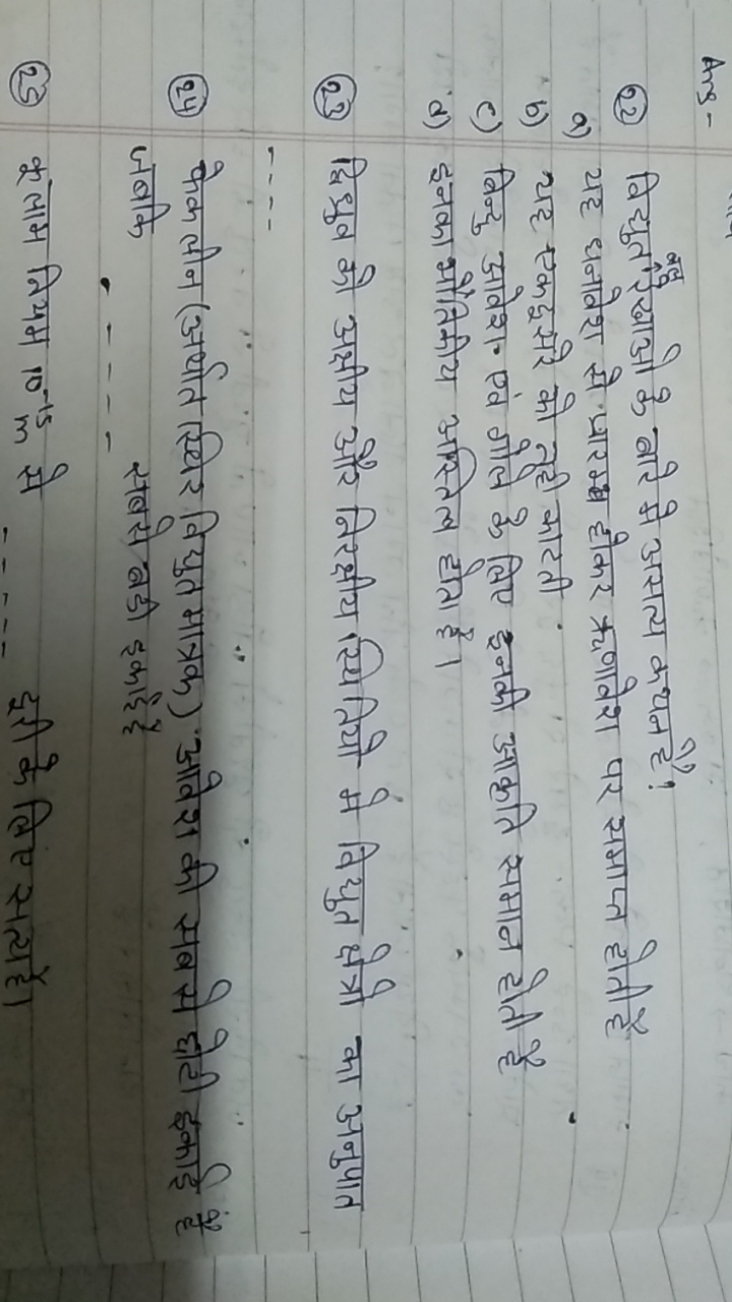 Ans -
22 विद्युत बल रेखाओ के बारे मे असत्य कथन है?
a) यह धनावेश से प्रारम्भ होकर ऋणावेश पर समाप्त होती है
b) यह एकदूसरे को नही काटती
c) बिन्दु आवेश एवं गोले के लिए इनकी आकृति समान होती है
d) इनका भौतिकीय अस्तित्व होता है।
23 द्विध्रुव की अक्षीय और निरक्षीय स्थितियो मे विद्युत क्षेत्रो का अनुपात
----
24 फ्रेंकलीन (अर्थात स्थिर विद्युत मात्रक) आवेश की सबसे छोटी इकाई है
जबकि ----- सबसे बडी इकाई है
25 कूलाम नियम 10⁻¹⁵ m से ----- दूरी के लिए सत्य है।